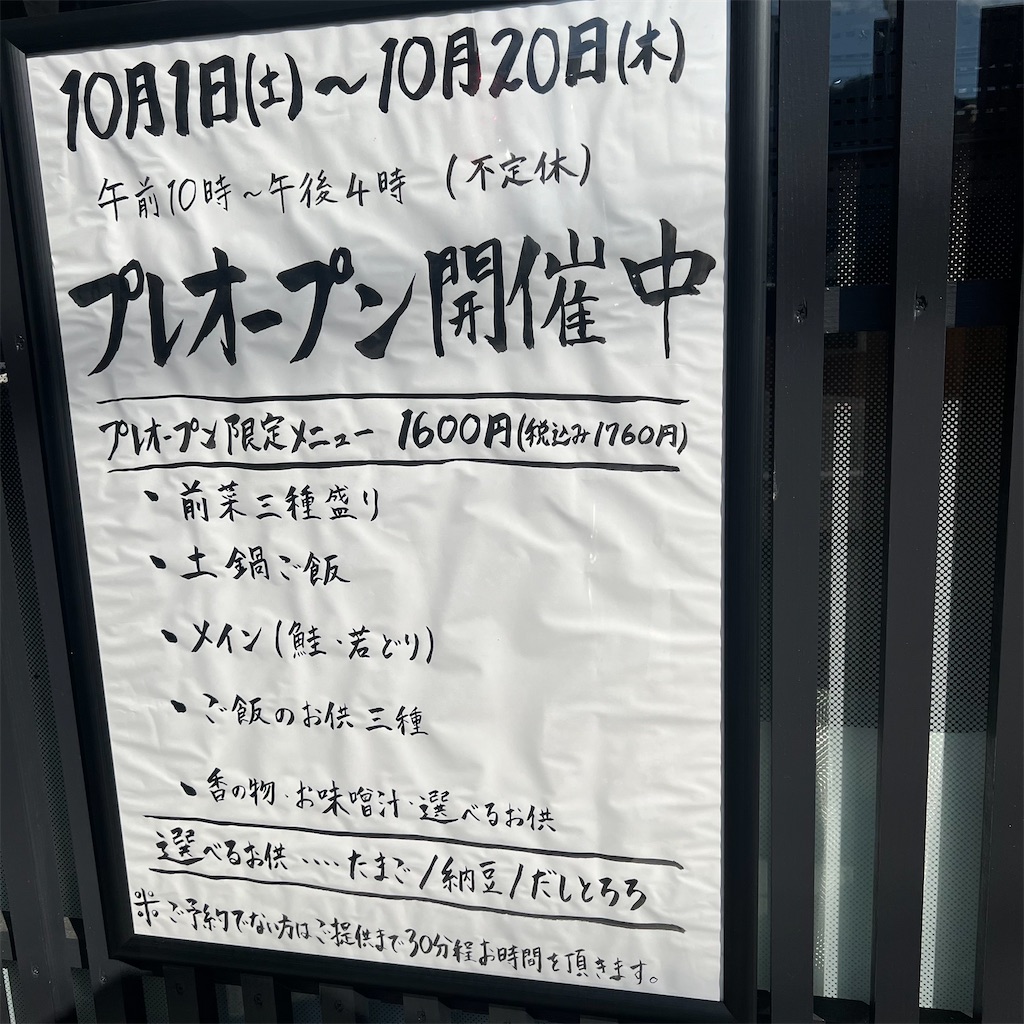 10月1日(土)～10月20日(木)
午前10時～午後4時 (不定休)
プレオープン開催中
プレオープン限定メニュー 1600円(税込み1760円)
・前菜三種盛り
・土鍋ご飯
・メイン(鮭・若どり)
・ご飯のお供三種
・香の物・お味噌汁・選べるお供
選べるお供‥‥たまご/納豆/だしとろろ
※ご予約でない方はご提供まで30分程お時間を頂きます。